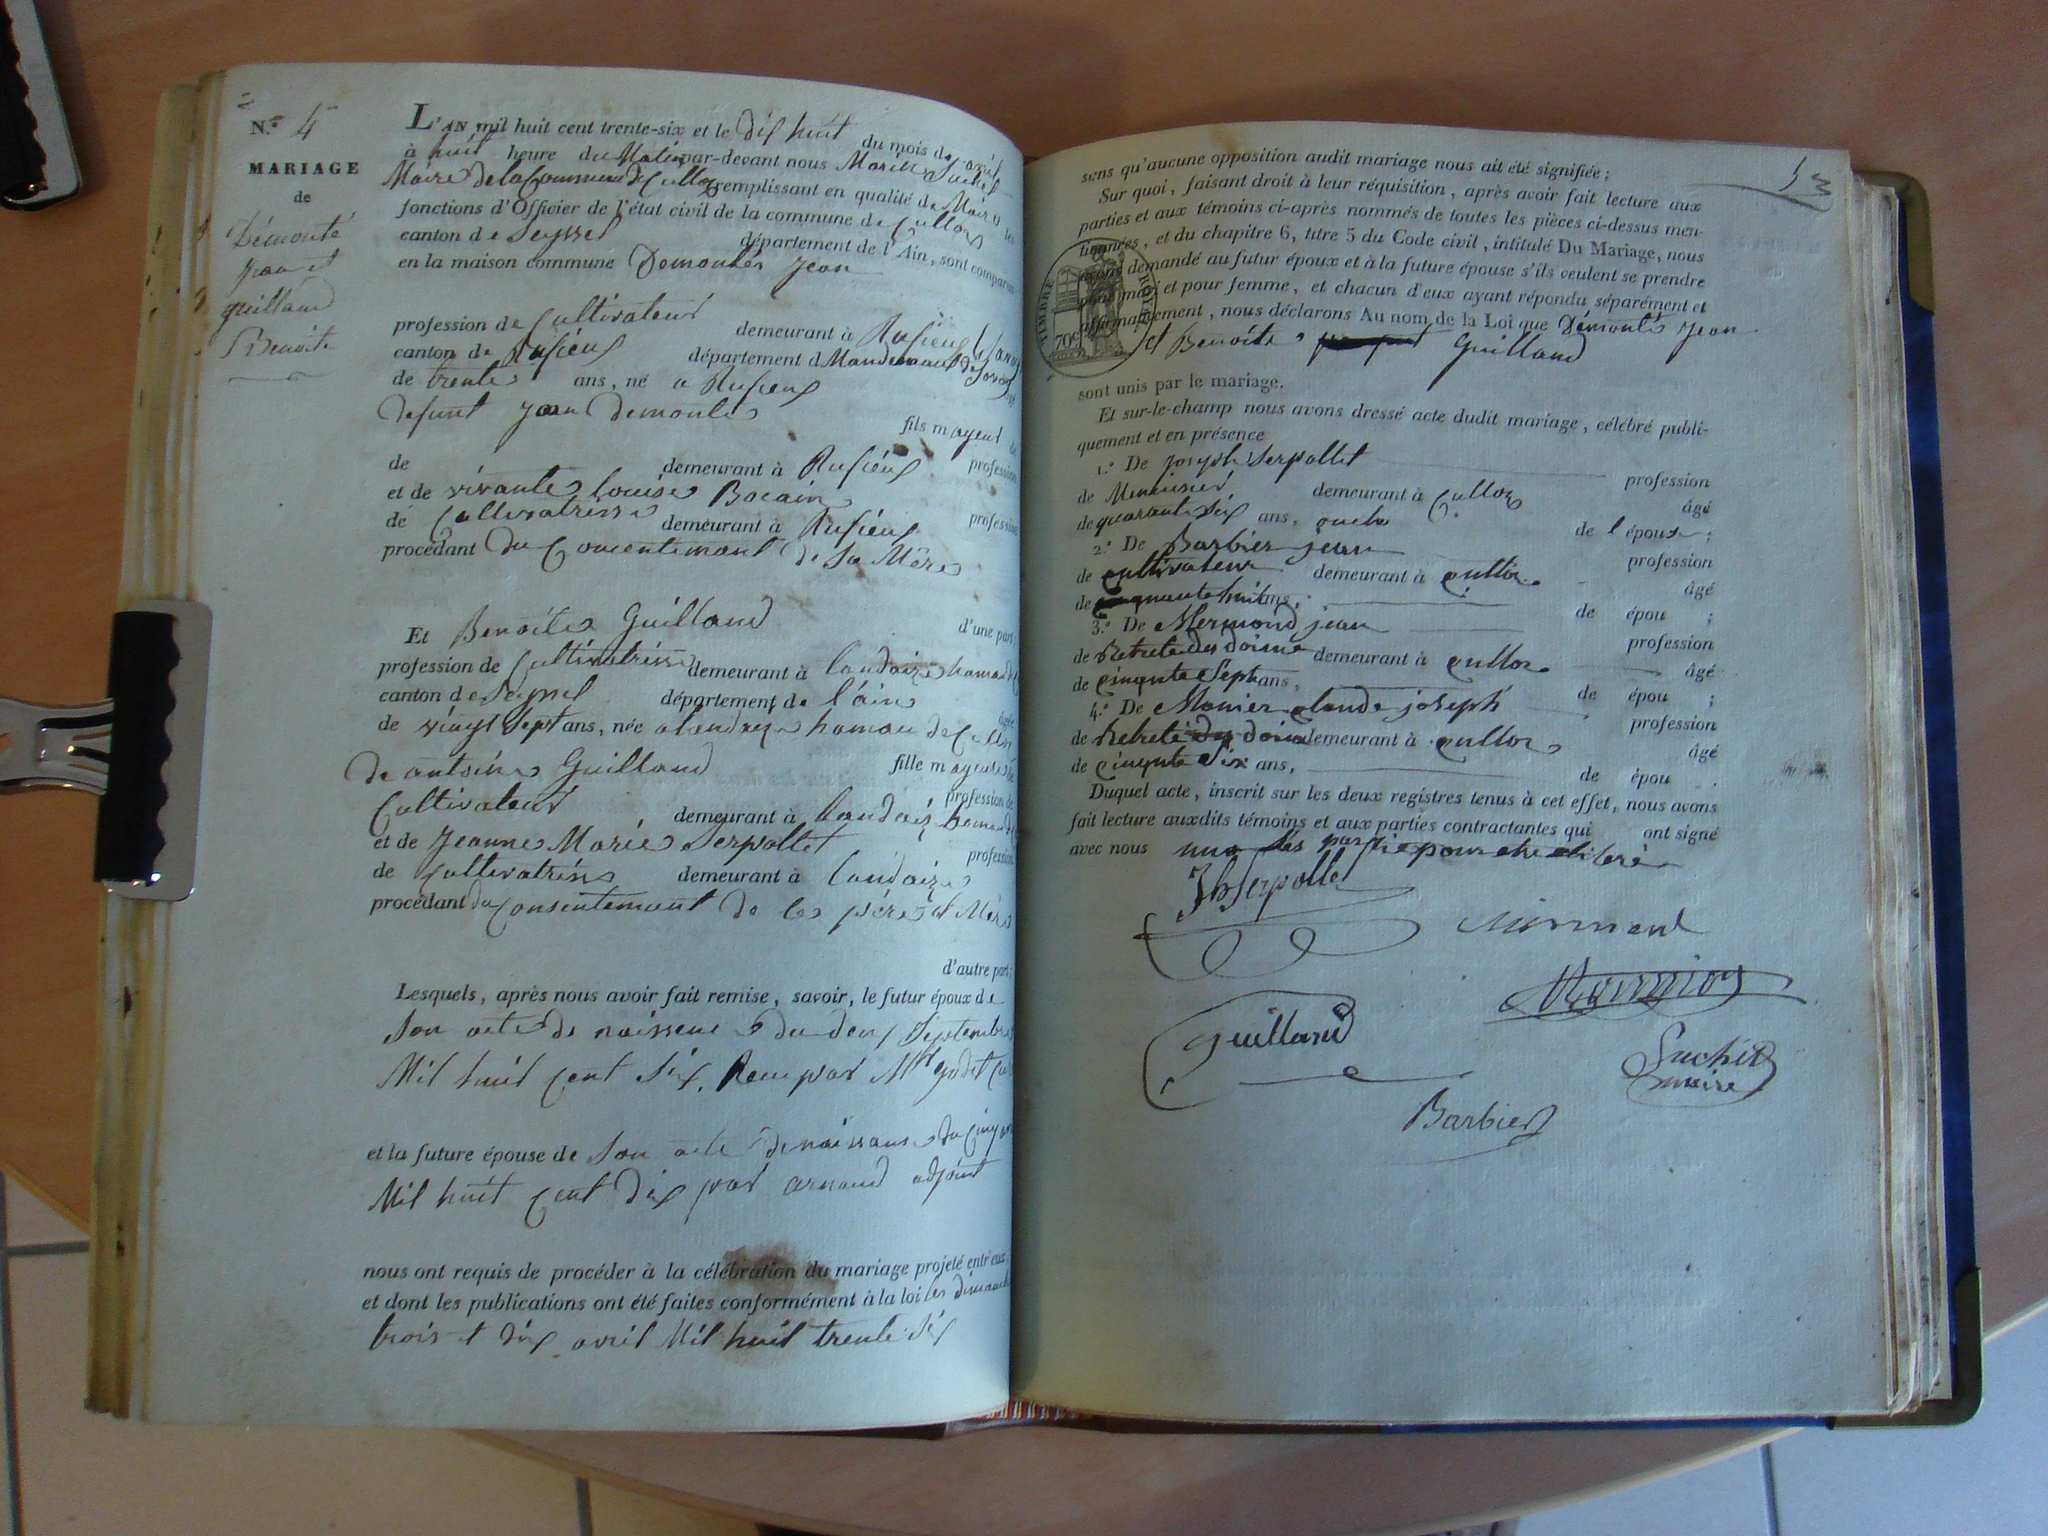 N.° 4
MARIAGE
de
Démonté
Jean et
guilland
Benoite
L'AN mil huit cent trente-six et le dix huit du mois de avril
à huit heure du Matin par-devant nous Suchet
Maire de la Commune de Culloz remplissant en qualité de Maire les
fonctions d'Officier de l'état civil de la commune de Culloz
canton de Seyssel département de l'Ain, sont comparus
en la maison commune Demontés Jean
profession de Cultivateur demeurant à Rufieux
canton de Rufieux département d
de trente ans, né a Rufieux
defunt jean demontés fils mageur de
de demeurant à Rufieux profession
et de vivante Louise Bocain
de Cultivatrisse demeurant à Rufieux profession
procédant du Consentement de Sa Mère
d'une part;
Et Benoite Guilland
profession de Cultivatrisse demeurant à landaize hamau de
canton de Seyssel département de l'ain
de vingt Sept ans, née a landaize hamau de
de antoine Guilland fille mageure de
Cultivateur demeurant à landaiz hamau de profession de
et de Jeanne Marie Serpollet
de Cultivatriss demeurant à landaize profession
procédant du Consentement de les père et Mère
d'autre part;
Lesquels, après nous avoir fait remise, savoir, le futur époux de
Son acte de naissence du deux Septembre
Mil huit cent Six, Recu par
et la future épouse de Son acte de naissans du
Mil huit cent dix par arnaud adjoint
nous ont requis de procéder à la célébration du mariage projeté entr'eux,
et dont les publications ont été faites conformément à la loi les dimanche
trois et dix avril Mil huit trente Six
sens qu'aucune opposition audit mariage nous ait été signifiée;
Sur quoi, faisant droit à leur réquisition, après avoir fait lecture aux
parties et aux témoins ci-après nommés de toutes les pièces ci-dessus men-
tionnées, et du chapitre 6, titre 5 du Code civil, intitulé Du Mariage, nous
avons demandé au futur époux et à la future épouse s'ils veulent se prendre
pour mari et pour femme, et chacun d'eux ayant répondu séparément et
affirmativement, nous déclarons Au nom de la Loi que Démontés Jean
et Benoite Guilland
TIMBRE ROYAL
70c
sont unis par le mariage.
Et sur-le-champ nous avons dressé acte dudit mariage, célébré publi-
quement et en présence
1.° De Joseph Serpollet profession
de Menuisier demeurant à Culloz âgé
de quarante Six ans, oncle de l'épouse;
2.° De Barbier jean profession
de cultivateur demeurant à culloz âgé
de quarante huit ans, de épou ;
3.° De Mermond jean profession
de Retraité des doine demeurant à culloz âgé
de cinqnte Sept ans, de épou ;
4.° De Monier claude joseph profession
de Retreté des doine demeurant à culloz âgé
de cinqnte Six ans, de épou .
Duquel acte, inscrit sur les deux registres tenus à cet effet, nous avons
fait lecture auxdits témoins et aux parties contractantes qui ont signé
avec nous non les partie pour etre
Jh Serpollet
Mermond
Guilland
Suchet
maire
Barbier